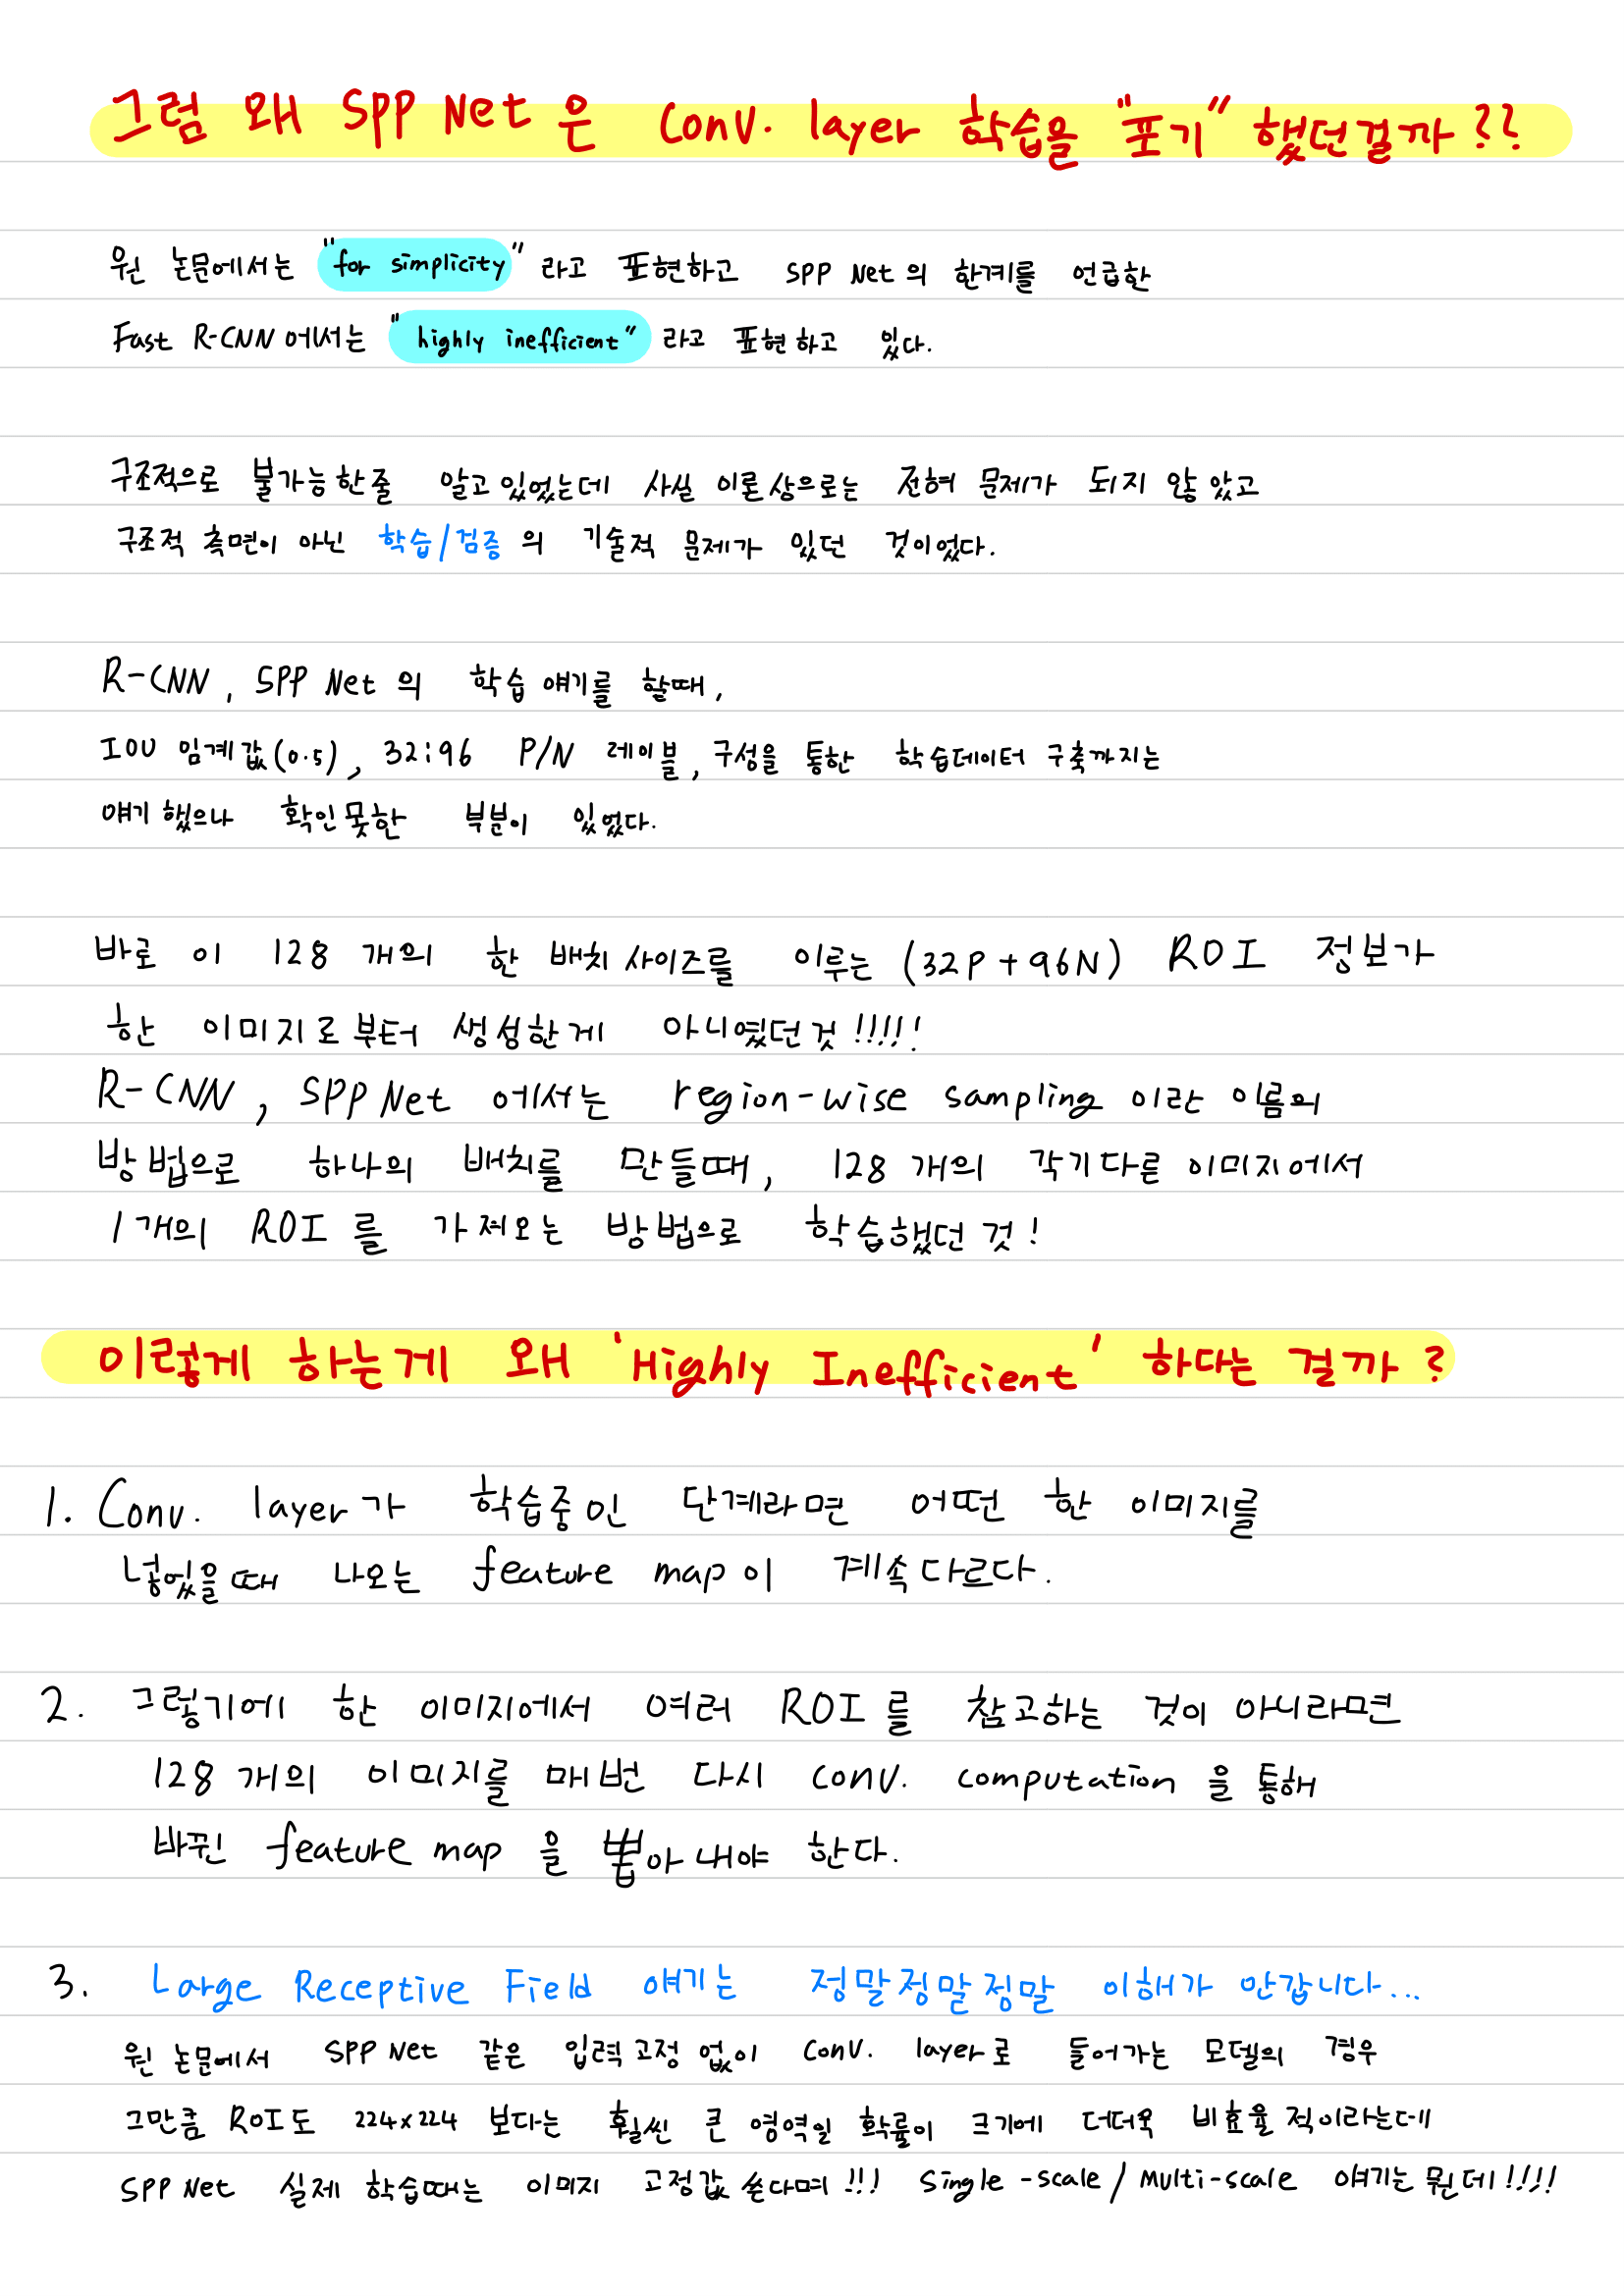 그럼 왜 SPP Net 은 Conv. layer 학습을 "포기" 했던걸까??
원 논문에서는 "for simplicity" 라고 표현하고 SPP Net 의 한계를 언급한
Fast R-CNN 에서는 "highly inefficient" 라고 표현하고 있다.
구조적으로 불가능한줄 알고 있었는데 사실 이론상으로는 전혀 문제가 되지 않았고
구조적 측면이 아닌 학습/검증 의 기술적 문제가 있던 것이었다.
R-CNN, SPP Net 의 학습 얘기를 할때,
IOU 임계값(0.5), 32:96 P/N 레이블, 구성을 통한 학습데이터 구축까지는
얘기 했으나 확인못한 부분이 있었다.
바로 이 128 개의 한 배치사이즈를 이루는 (32P + 96N) ROI 정보가
한 이미지로부터 생성한게 아니였던것!!!!!
R-CNN, SPP Net 에서는 region-wise sampling 이란 이름의
방법으로 하나의 배치를 만들때, 128 개의 각기다른 이미지에서
1개의 ROI 를 가져오는 방법으로 학습했던 것!
이렇게 하는게 왜 'Highly Inefficient' 하다는 걸까?
1. Conv. layer가 학습중인 단계라면 어떤 한 이미지를
넣었을때 나오는 feature map이 계속다르다.
2. 그렇기에 한 이미지에서 여러 ROI 를 참고하는 것이 아니라면
128 개의 이미지를 매번 다시 conv. computation 을 통해
바뀐 feature map 을 뽑아내야 한다.
3. Large Receptive Field 얘기는 정말정말정말 이해가 안갑니다...
원 논문에서 SPP Net 같은 입력고정 없이 conv. layer로 들어가는 모델의 경우
그만큼 RoI도 224x224 보다는 훨씬 큰 영역일 확률이 크기에 더더욱 비효율적이라는데
SPP Net 실제 학습때는 이미지 고정값 쓴다며!!! Single-scale/Multi-scale 얘기는 뭔데!!!!